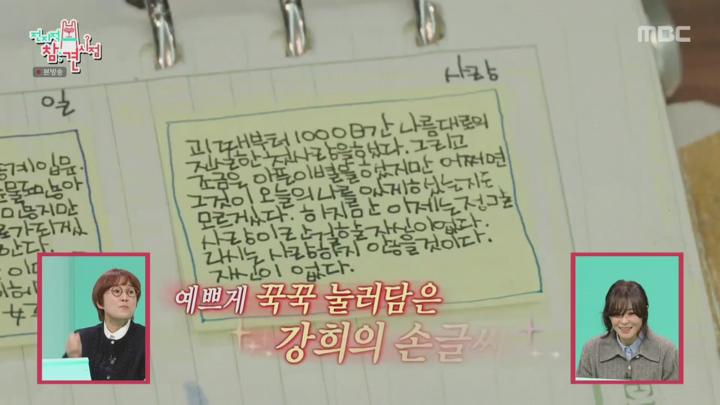 전지적
참견시점
본방송
MBC
일
사랑
고1때부터 1000日간 나름대로의
진실한 첫사랑을 하였다. 그리고
조금은 아픈 이별을 했지만 어쩌면
그것이 오늘의 나를 있게 하였는지도
모르겠다. 하지만 이제는 정말
사랑이란 걸 할 자신이 없다.
다시는 사랑하지 않을 것이다.
자신이 없다.
예쁘게 꾹꾹 눌러담은
강희의 손글씨